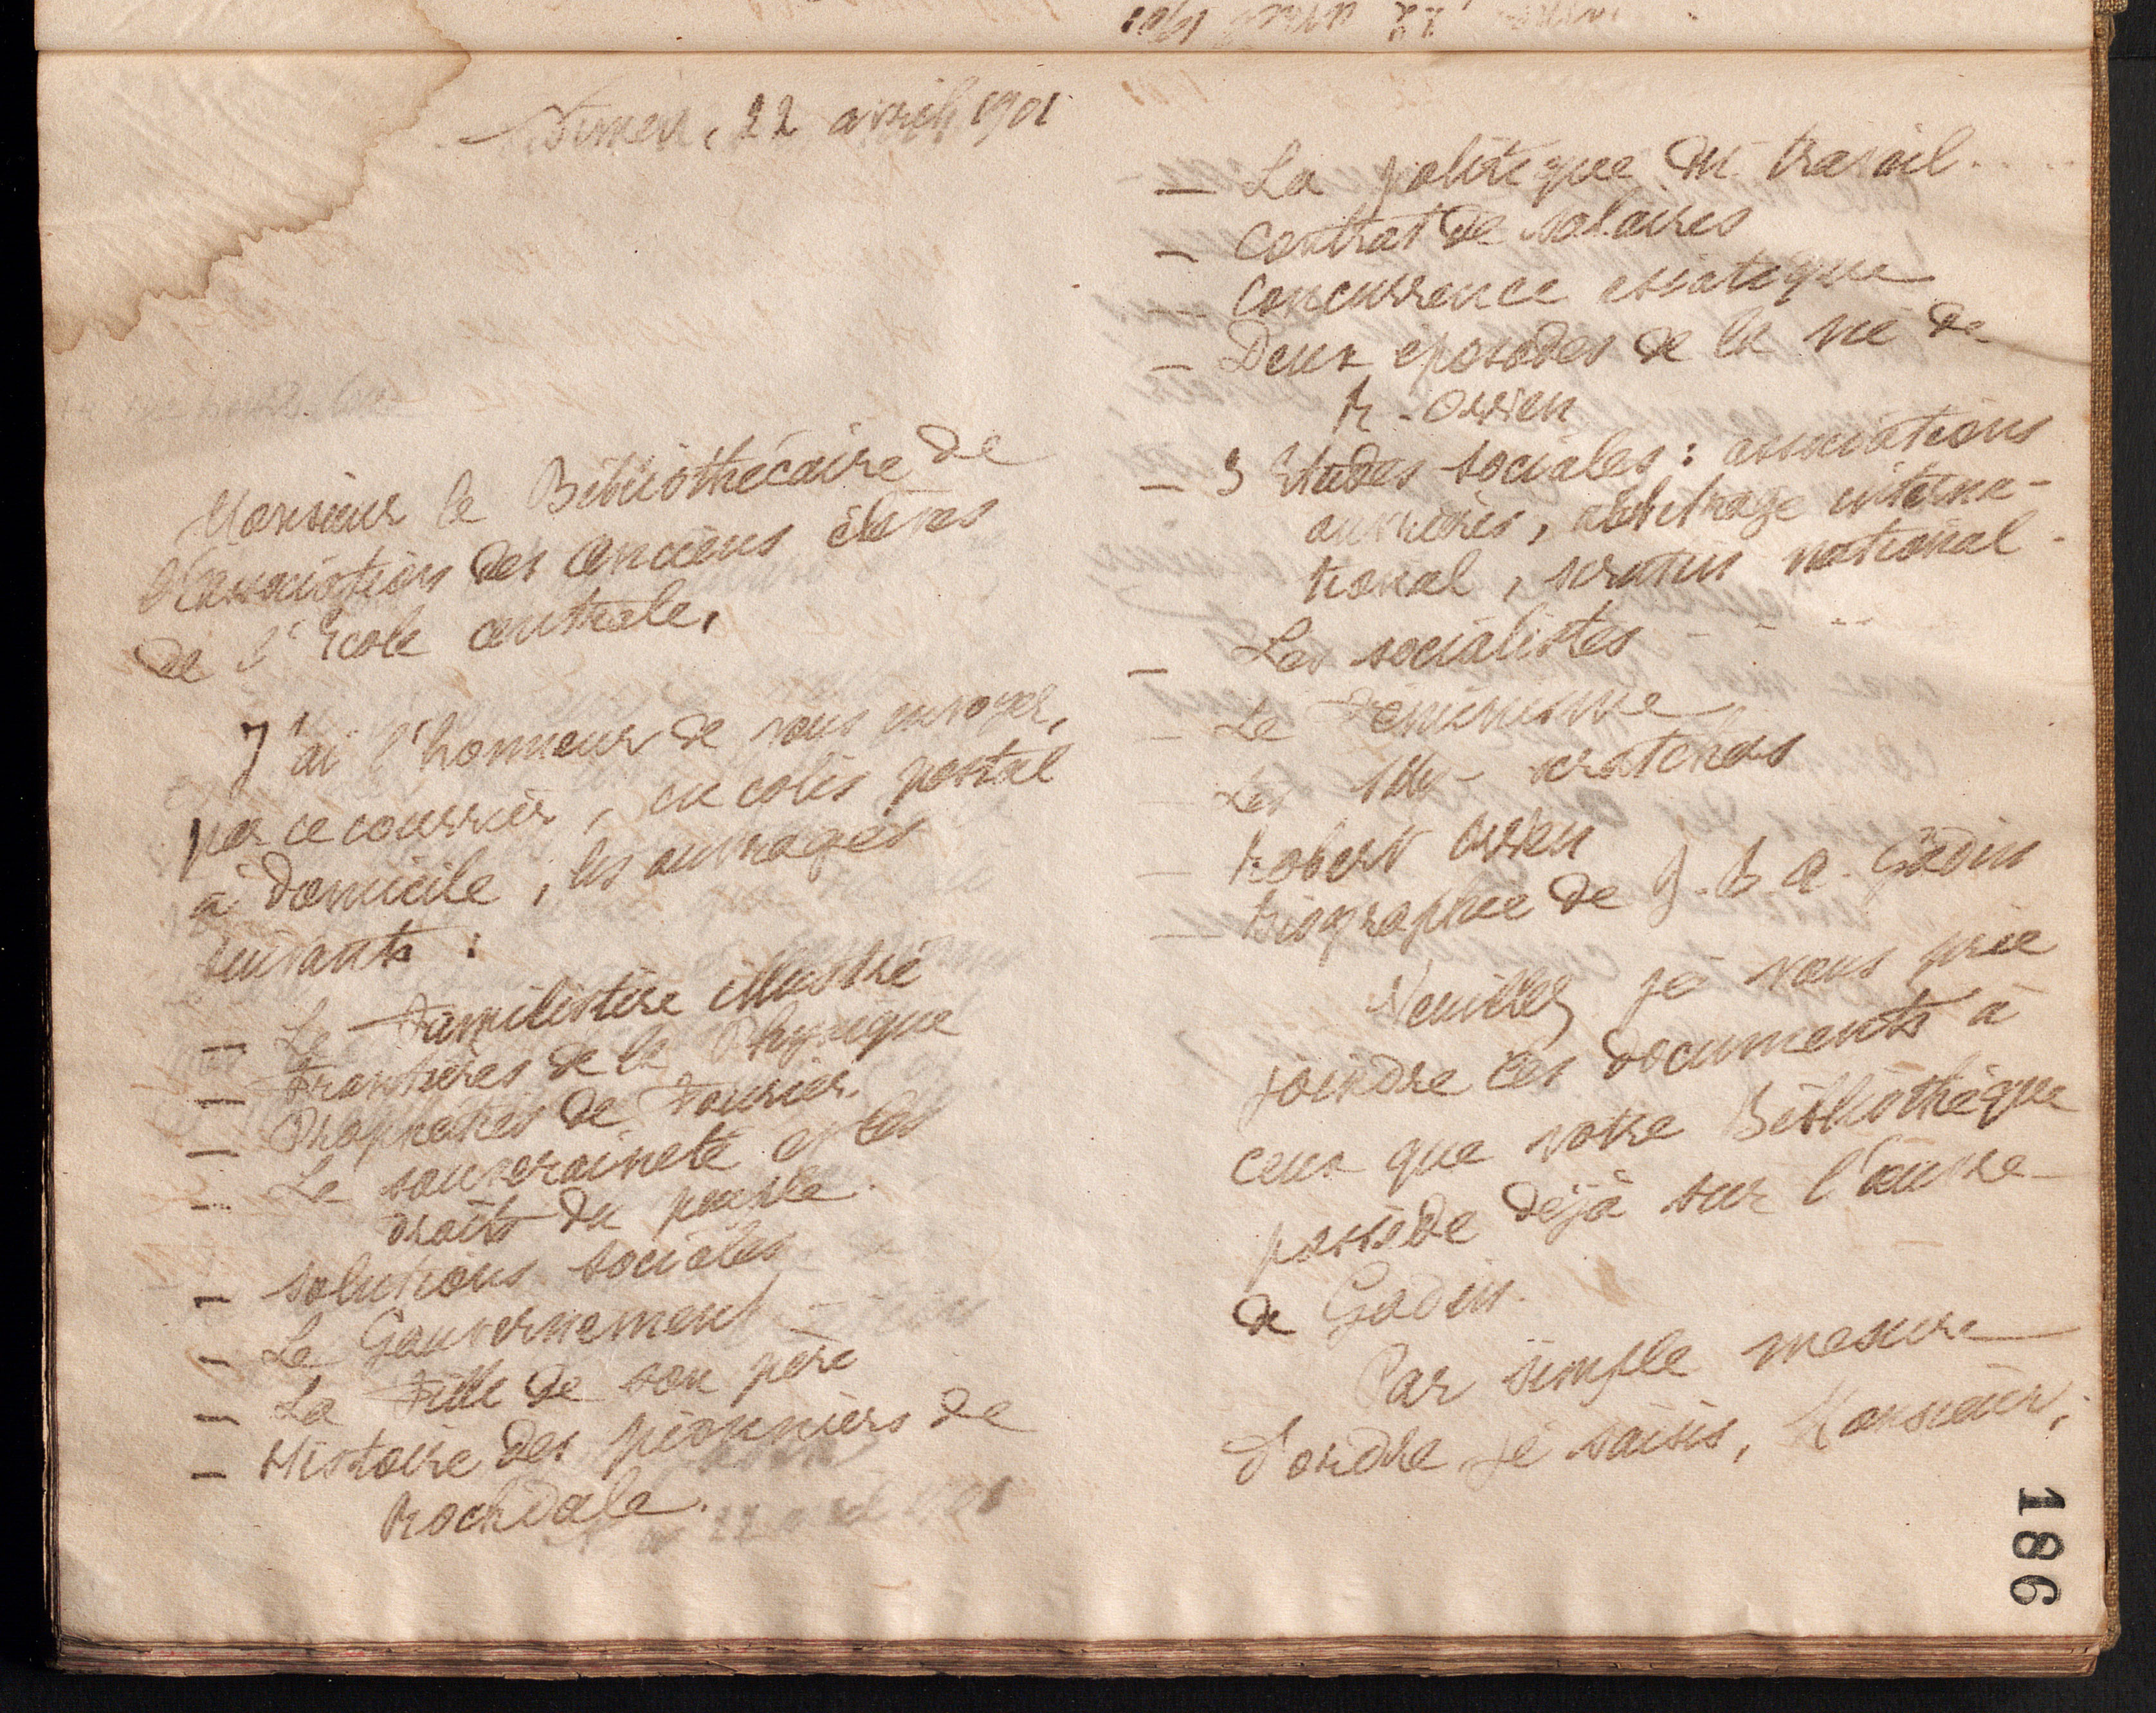 Nimes, 22 avril 1901
Monsieur le Bibliothécaire de
l'association des anciens élèves
de l'Ecole centrale,
J'ai l'honneur de vous envoyer,
par ce courrier, en colis postal
à domicile, les ouvrages
suivants :
— Le Familistère illustré
— Frontières de la Physique
— Prophéties de Fourier.
— La souveraineté et les
droits du peuple.
— Solutions sociales
— Le Gouvernement
— La Fille de son père
— Histoire des pionniers de
Rochdale.
— La politique du travail
— Contrat de salaires
— Concurrence asiatique
— Deux episodes de la vie de
R. Owen
— 3 Etudes sociales : associations
ouvrières, arbitrage interna-
tional, scrutin national.
— Les socialistes
— Le Féminisme
— Les scratchas
— Robert Owen
— Biographie de J. B. A. Godin
Veuillez je vous prie
joindre ces documents à
ceux que votre Bibliothèque
possède déjà sur l'œuvre
de Godin.
Par simple mesure
d'ordre je saisis, Monsieur,
186